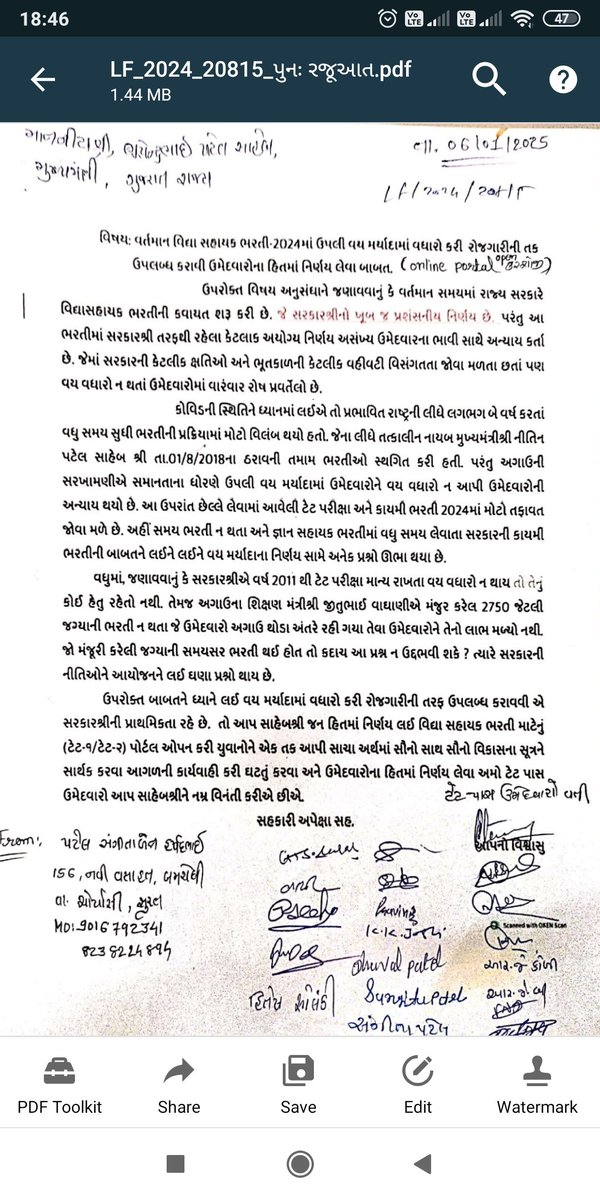 18:46
Vo LTE Vo LTE 47
LF_2024_20815_પુનઃ રજૂઆત.pdf
1.44 MB
તા. 06/01/2025
ગુજરાત રાજ્ય
વિષય: વર્તમાન વિદ્યા સહાયક ભરતી-2024માં ઉપલી વય મર્યાદામાં વધારો કરી રોજગારીની તક
ઉપલબ્ધ કરાવી ઉમેદવારોના હિતમાં નિર્ણય લેવા બાબત. (online portal open
ઉપરોક્ત વિષય અનુસંધાને જણાવવાનું કે વર્તમાન સમયમાં રાજ્ય સરકારે
વિદ્યાસહાયક ભરતીની કવાયત શરૂ કરી છે. જે સરકારશ્રીનો ખૂબ જ પ્રશંસનીય નિર્ણય છે. પરંતુ આ
ભરતીમાં સરકારશ્રી તરફથી રહેલા કેટલાક અયોગ્ય નિર્ણય અસંખ્ય ઉમેદવારના ભાવી સાથે અન્યાય કર્તા
છે. જેમાં સરકારની કેટલીક ક્ષતિઓ અને ભૂતકાળની કેટલીક વહીવટી વિસંગતતા જોવા મળતા છતાં પણ
વય વધારો ન થતાં ઉમેદવારોમાં વારંવાર રોષ પ્રવર્તેલો છે.
કોવિડની સ્થિતિને ધ્યાનમાં લઈએ તો પ્રભાવિત રાષ્ટ્રની લીધે લગભગ બે વર્ષ કરતાં
વધુ સમય સુધી ભરતીની પ્રક્રિયામાં મોટો વિલંબ થયો હતો. જેના લીધે તત્કાલીન નાયબ મુખ્યમંત્રીશ્રી નીતિન
પટેલ સાહેબ શ્રી તા.01/8/2018ના ઠરાવની તમામ ભરતીઓ સ્થગિત કરી હતી. પરંતુ અગાઉની
સરખામણીએ સમાનતાના ધોરણે ઉપલી વય મર્યાદામાં ઉમેદવારોને વય વધારો ન આપી ઉમેદવારોની
અન્યાય થયો છે. આ ઉપરાંત છેલ્લે લેવામાં આવેલી ટેટ પરીક્ષા અને કાયમી ભરતી 2024માં મોટો તફાવત
જોવા મળે છે. અહીં સમય ભરતી ન થતા અને જ્ઞાન સહાયક ભરતીમાં વધુ સમય લેવાતા સરકારની કાયમી
ભરતીની બાબતને લઈને લઈને વય મર્યાદાના નિર્ણય સામે અનેક પ્રશ્નો ઊભા થયા છે.
વધુમાં, જણાવવાનું કે સરકારશ્રીએ વર્ષ 2011 થી ટેટ પરીક્ષા માન્ય રાખતા વય વધારો ન થાય તો તેનું
કોઈ હેતુ રહેતો નથી. તેમજ અગાઉના શિક્ષણ મંત્રીશ્રી જીતુભાઈ વાઘાણીએ મંજુર કરેલ 2750 જેટલી
જગ્યાની ભરતી ન થતા જે ઉમેદવારો અગાઉ થોડા અંતરે રહી ગયા તેવા ઉમેદવારોને તેનો લાભ મળ્યો નથી.
જો મંજૂરી કરેલી જગ્યાની સમયસર ભરતી થઈ હોત તો કદાચ આ પ્રશ્ન ન ઉદ્દભવી શકે ? ત્યારે સરકારની
નીતિઓને આયોજનને લઈ ઘણા પ્રશ્નો થાય છે.
ઉપરોક્ત બાબતને ધ્યાને લઈ વય મર્યાદામાં વધારો કરી રોજગારીની તરફ ઉપલબ્ધ કરાવવી એ
સરકારશ્રીની પ્રાથમિકતા રહે છે. તો આપ સાહેબશ્રી જન હિતમાં નિર્ણય લઈ વિદ્યા સહાયક ભરતી માટેનું
(ટેટ-૧/ટેટ-૨) પોર્ટલ ઓપન કરી યુવાનોને એક તક આપી સાચા અર્થમાં સૌનો સાથ સૌનો વિકાસના સૂત્રને
સાર્થક કરવા આગળની કાર્યવાહી કરી ઘટતું કરવા અને ઉમેદવારોના હિતમાં નિર્ણય લેવા અમો ટેટ પાસ
ઉમેદવારો આપ સાહેબશ્રીને નમ્ર વિનંતી કરીએ છીએ.
ટેટ-પાસ ઉમેદવારો વતી
સહકારી અપેક્ષા સહ.
આપનો વિશ્વાસુ
From: પટેલ
156, નવી વસાહત,
સુરત
MO: 9016792341
8238224894
Scanned with OKEN Scan
K.K.
Dhruval Patel
હિતેષ
સંગીતા પટેલ
PDF Toolkit
Share
Save
Edit
Watermark